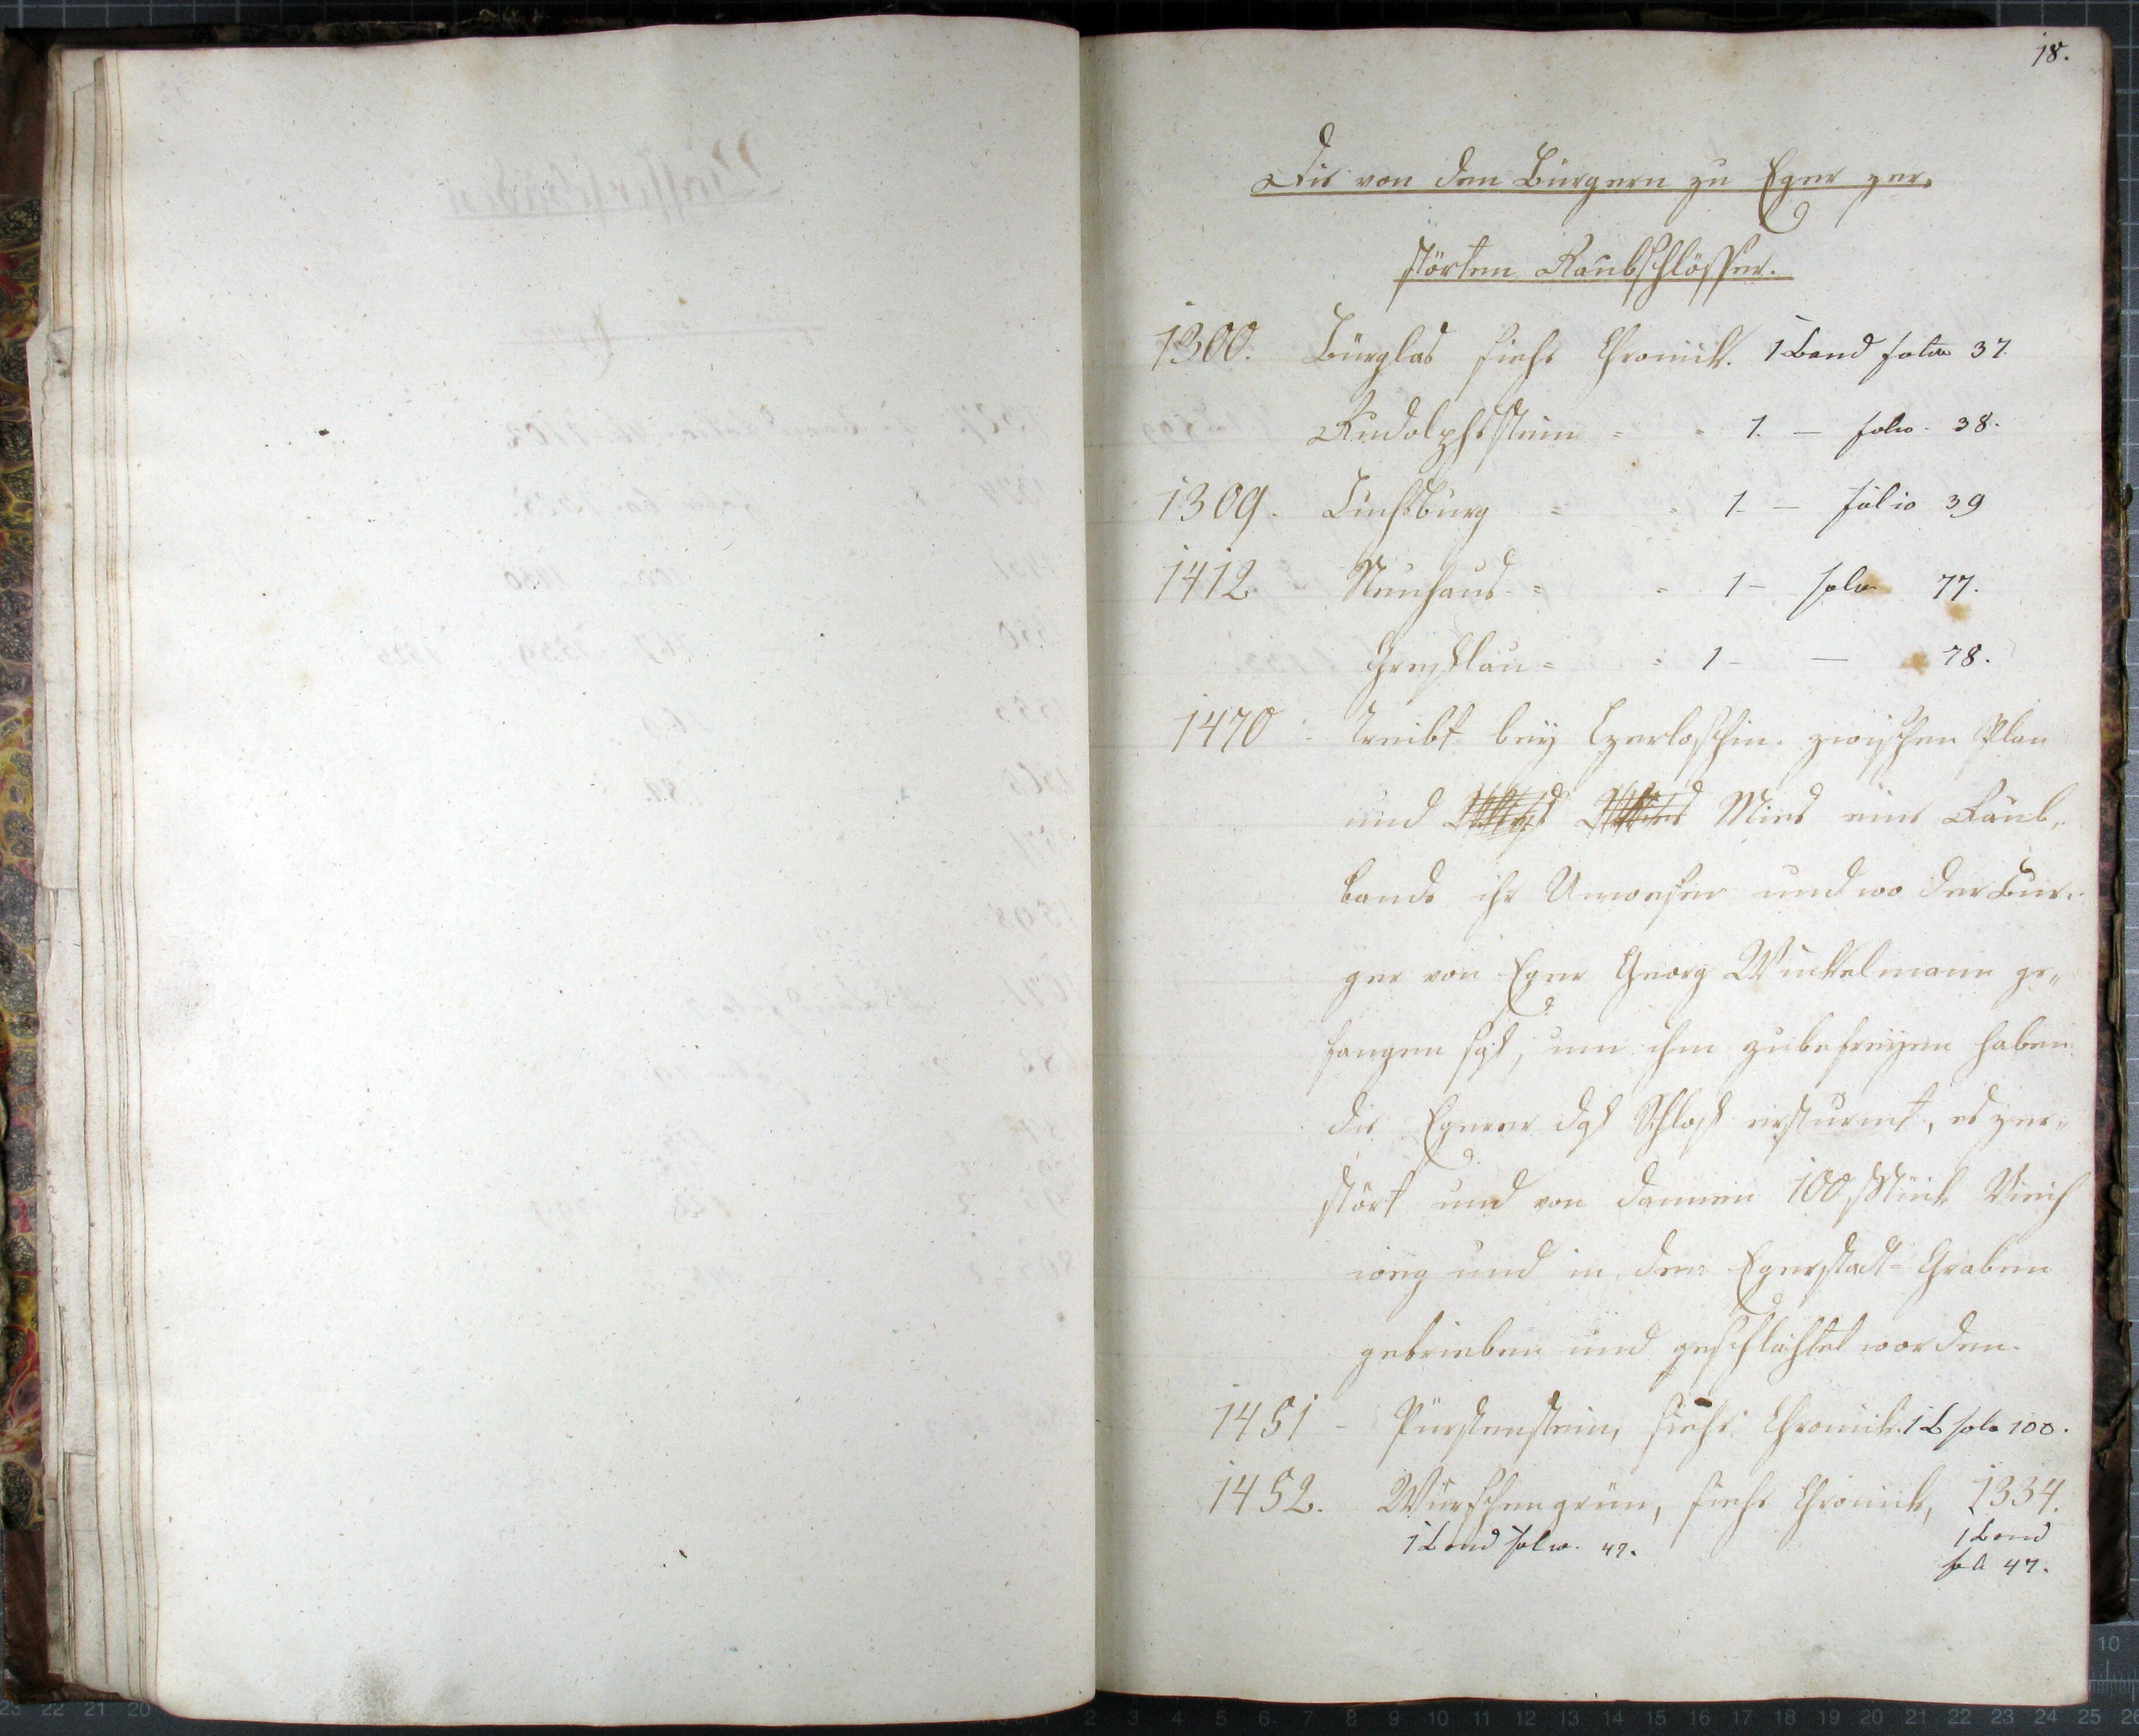 18.
Die von den Bürgern zu Eger zer-
störten Raubschlösser.
1300. Bürglas siehe Chronik. 1 Band folio 37.
Rudolphsstein = = 1. — folio. 38.
1309. Luchsburg = = 1. — folio 39
1412. Neuhaus = = 1 — folio 77.
Graslau = = 1 — — 78.
1470 Treibt bey Czerloschin. zwischen Plan
und Mies eine Raub-
bande ihr Unwesen und wo der Bür-
ger von Eger Georg Winkelmann ge-
fangen saß, um ihm zubefreyen haben
die Egerer das Schloß ersturmt, es zer-
stört und von dannen 100 Stück Vieh
weg und in den Egerstadt-Graben
getrieben und geschlachtet worden.
1451 - Pürstenstein, siehe Chronik. 1 B folo 100.
1452. Wurschengrün, siehe Chronik, 1334.
1 Band folio. 47. 1 Band
fol 47.